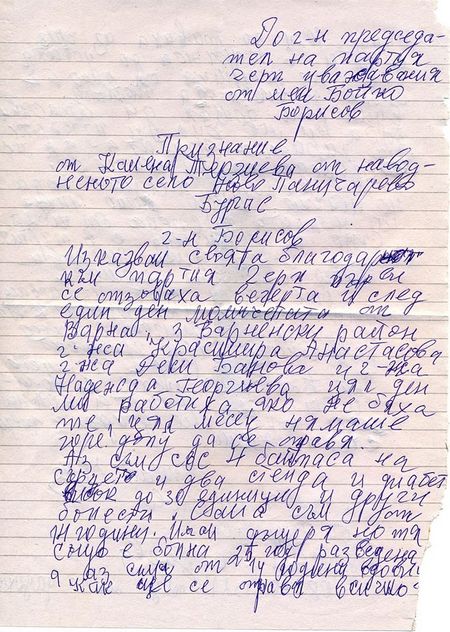 До г-н председа-
тел на партия
герп уважавания
от мен Бойко
Борисов
Признание
от Калена Терзиева от навод-
неното село Ново Паничарево
Бургас
г-н Борисов
Изказвам своята благодарност
към партия герп
се отзоваха вечерта и след
един ден момичетата от
Варна, 3 Варненски район
г-жа Красимира Анастасова
г-жа Деси Банова и г-жа
Надежда Георгиева цял ден
ми работиха ако не бяха
те, цял месец нямаше
горе, долу да се оправя
Аз съм със 4 байпаса на
сърцето и два стенда и диабет
висок до 30 единици и други
болести, сама съм от
14 години. Имам дъщеря но тя
също е болна 24 год разведена
а аз също от 14 година
как ще се оправя всичко